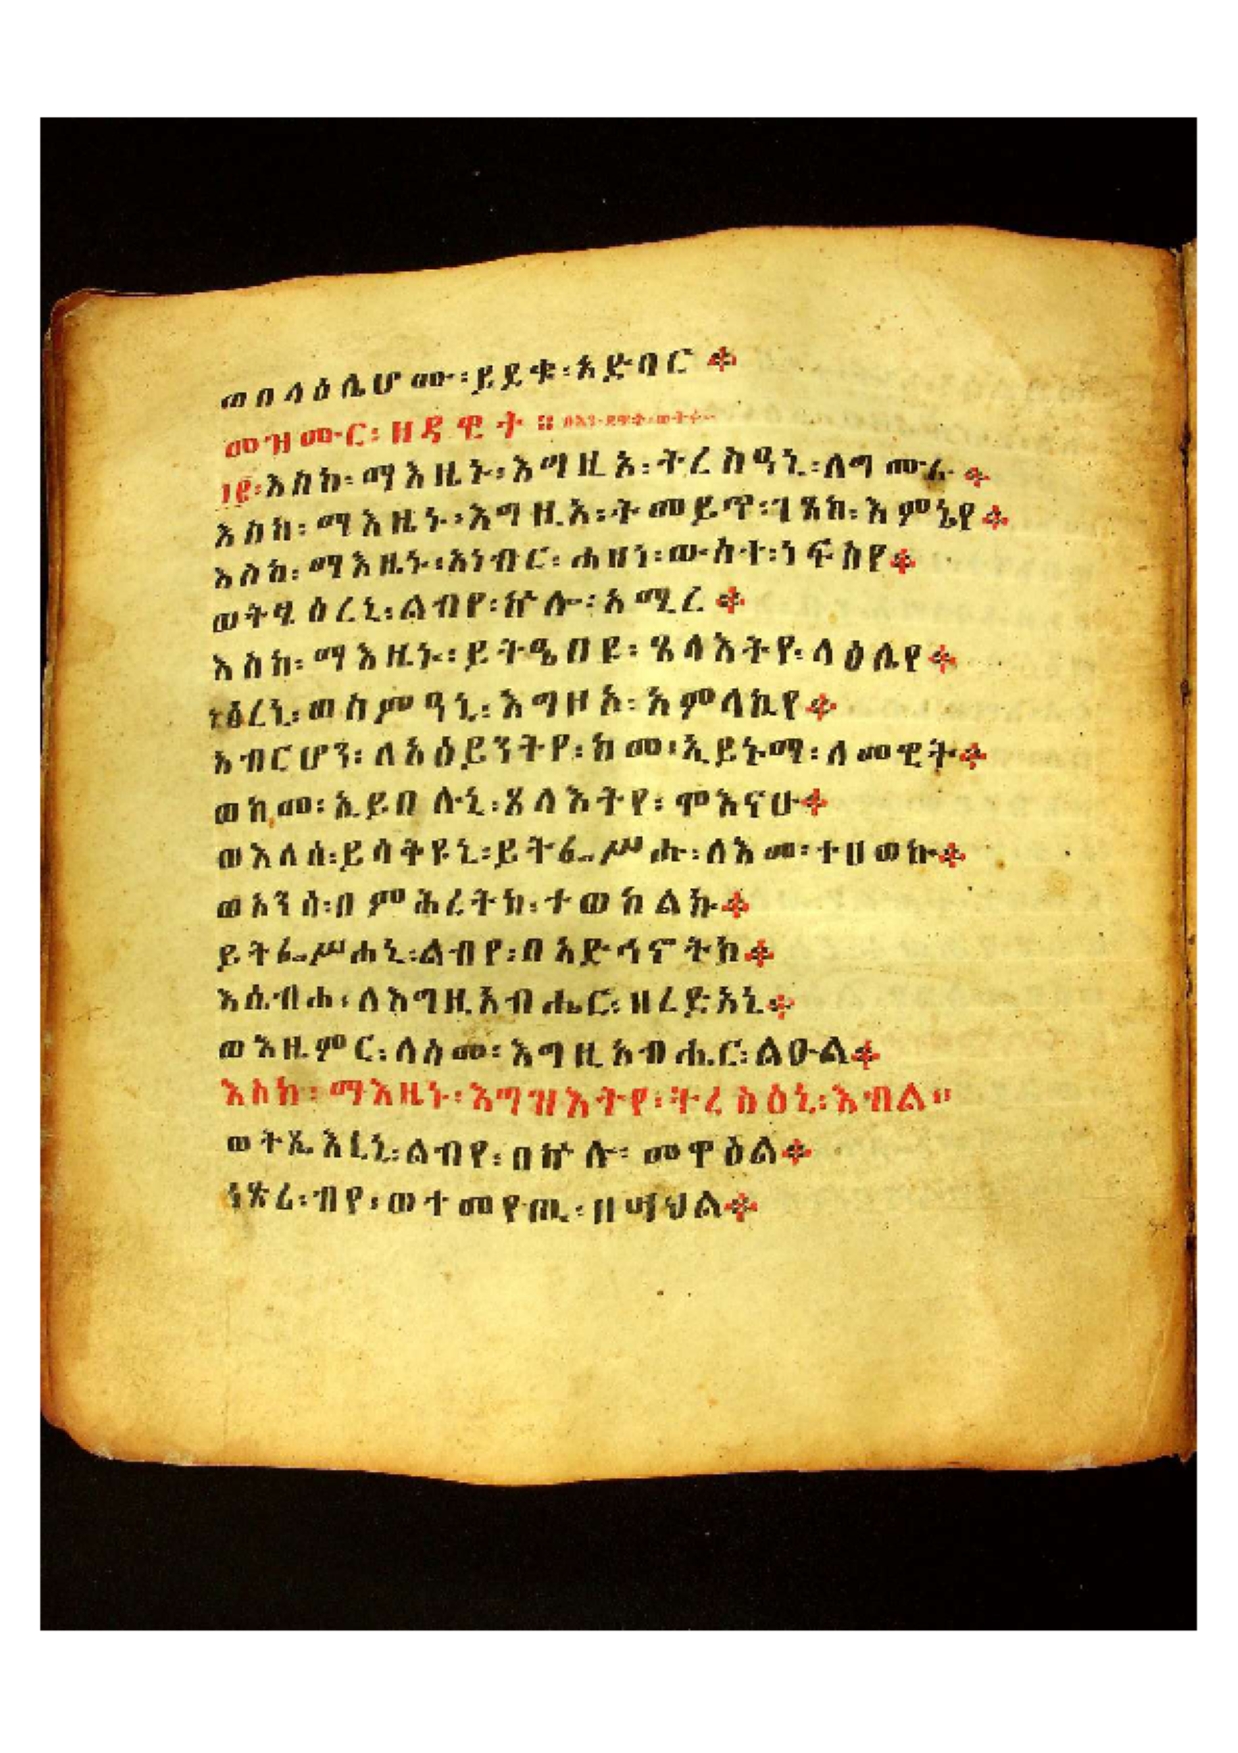 ወበላዕሌሆሙ፡ይደቁ፡አድባር።
መዝሙር፡ዘዳዊት።
፲፪፡እስከ፡ማእዜኑ፡እግዚአ፡ትረስዓኒ፡ለግሙራ።
እስከ፡ማእዜኑ፡እግዚአ፡ትመይጥ፡ገጸከ፡እምኔየ።
እስከ፡ማእዜኑ፡አነብር፡ሐዘነ፡ውስተ፡ነፍስየ።
ወትፄዕረኒ፡ልብየ፡ኵሎ፡አሚረ።
እስከ፡ማእዜኑ፡ይትዔበዩ፡ጸላእትየ፡ላዕሌየ።
ነጽረኒ፡ወስምዓኒ፡እግዚኦ፡አምላኪየ።
አብርሆን፡ለአዕይንትየ፡ከመ፡ኢይኑማ፡ለመዊት።
ወከመ፡ኢይበሉኒ፡ጸላእትየ፡ሞእናሁ።
ወእለሰ፡ይሳቅዩኒ፡ይትፌሥሑ፡ለእመ፡ተሀወኩ።
ወአንሰ፡በምሕረትከ፡ተወከልኩ።
ይትፌሥሐኒ፡ልብየ፡በአድኅኖትከ።
እሴብሐ፡ለእግዚአብሔር፡ዘረድአኒ።
ወእዜምር፡ለስመ፡እግዚአብሔር፡ልዑል።
እስከ፡ማእዜኑ፡እግዝእትየ፡ትረስዕኒ፡እብል።
ወትጼእረኒ፡ልብየ፡በኵሉ፡መዋዕል።
ነጽሪ፡ብየ፡ወተመየጢ፡ዘሣህል።